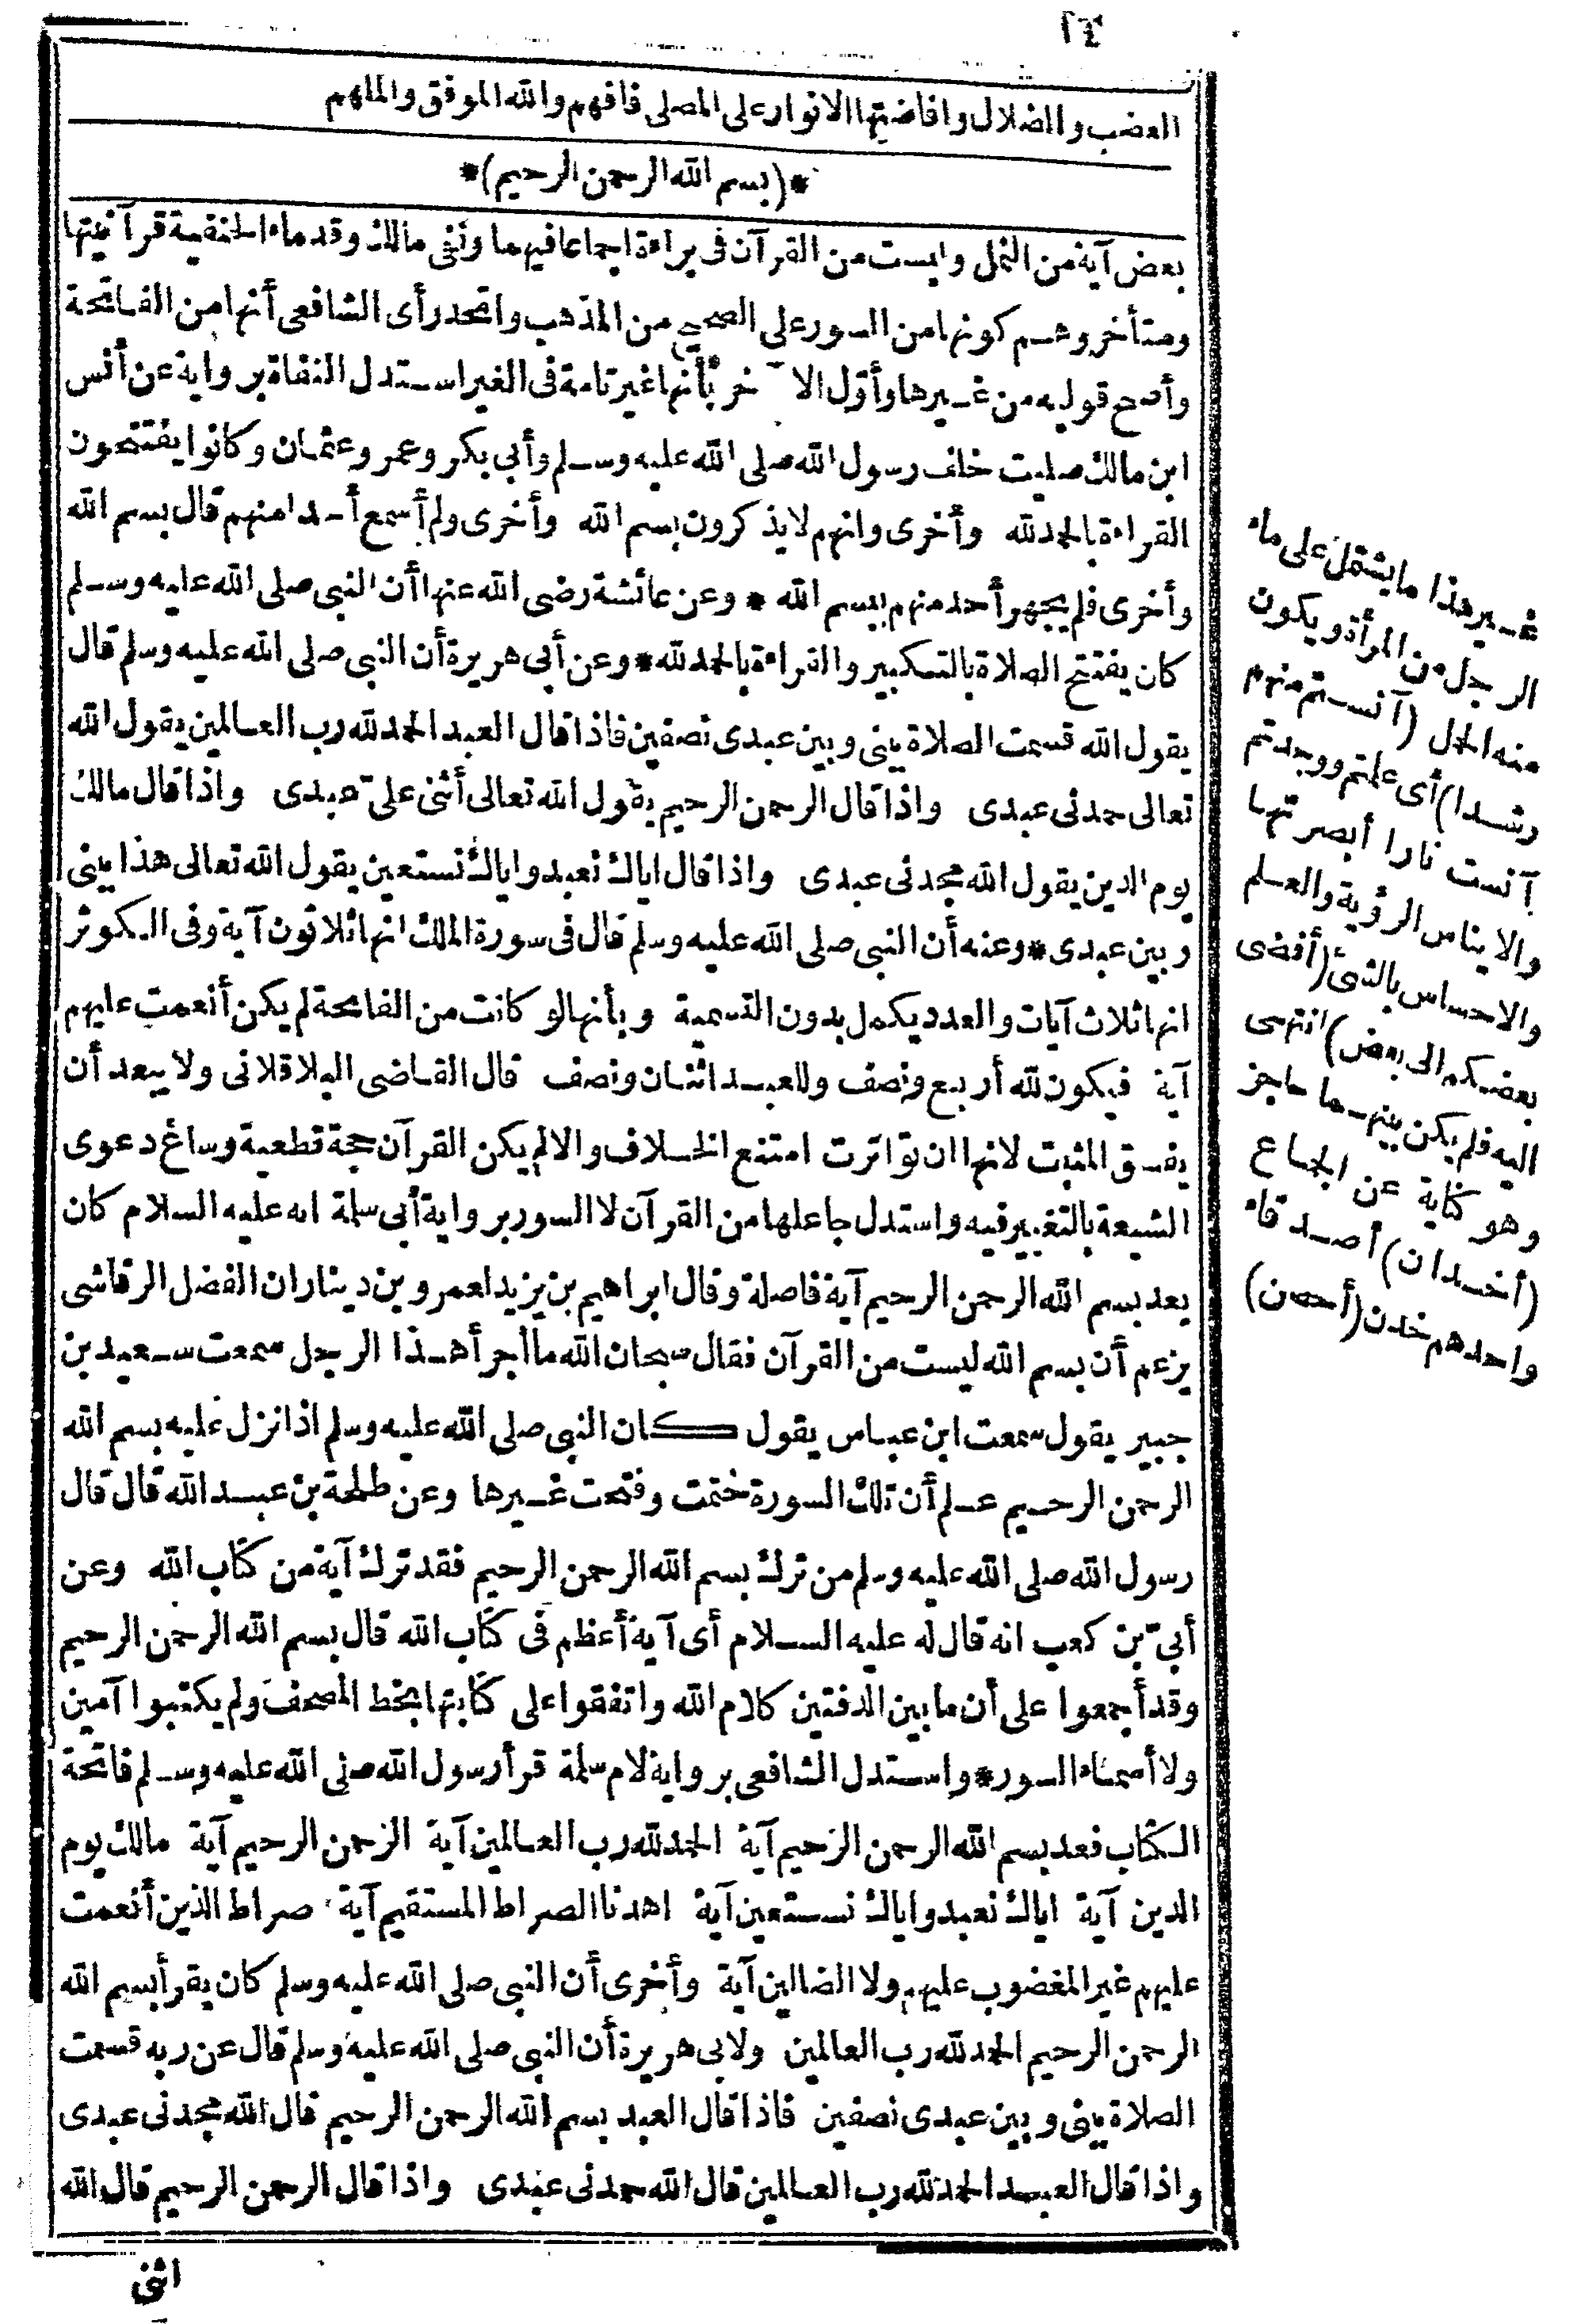 ١٤
الغضب والضلال وافاضتها الانوار على المصلى فافهم والله الموفق والملهم
*(بسم الله الرحمن الرحيم)*
بعض آية من النمل وليست من القرآن فى براءة اجماعا فيهما ونفى مالك وقدماء الحنفية قرآنيتها
ومتأخروهم كونها من السور على الصحيح من المذهب واتحد رأى الشافعى أنها من الفاتحة
وأصح قوليه من غيرها وأول الآخر بأنها غير تامة فى الغير استدل النفاة برواية عن أنس
ابن مالك صليت خلف رسول الله صلى الله عليه وسلم وأبى بكر وعمر وعثمان وكانوا يفتتحون
القراءة بالحمد لله وأخرى وانهم لا يذكرون بسم الله وأخرى ولم أسمع أحدا منهم قال بسم الله
وأخرى فلم يجهر أحد منهم ببسم الله * وعن عائشة رضى الله عنها أن النبى صلى الله عليه وسلم
كان يفتتح الصلاة بالتكبير والقراءة بالحمد لله * وعن أبى هريرة أن النبى صلى الله عليه وسلم قال
يقول الله قسمت الصلاة بينى وبين عبدى نصفين فاذا قال العبد الحمد لله رب العالمين يقول الله
تعالى حمدنى عبدى واذا قال الرحمن الرحيم يقول الله تعالى أثنى علىّ عبدى واذا قال مالك
يوم الدين يقول الله مجدنى عبدى واذا قال اياك نعبد واياك نستعين يقول الله تعالى هذا بينى
وبين عبدى * وعنه أن النبى صلى الله عليه وسلم قال فى سورة الملك انها ثلاثون آية وفى الكوثر
انها ثلاث آيات والعدد يكمل بدون التسمية وبأنها لو كانت من الفاتحة لم يكن أنعمت عليهم
آية فيكون لله أربع ونصف وللعبد اثنان ونصف قال القاضى الباقلانى ولا يبعد أن
يفسق المثبت لانها ان تواترت امتنع الخلاف والا لم يكن القرآن حجة قطعية وساغ دعوى
الشيعة بالتغيير فيه واستدل جاعلها من القرآن لا السور برواية أبى سلمة انه عليه السلام كان
يعد بسم الله الرحمن الرحيم آية فاصلة وقال ابراهيم بن يزيد لعمرو بن دينار ان الفضل الرقاشى
يزعم أن بسم الله ليست من القرآن فقال سبحان الله ما أجرأ هذا الرجل سمعت سعيد بن
جبير يقول سمعت ابن عباس يقول كان النبى صلى الله عليه وسلم اذا نزل عليه بسم الله
الرحمن الرحيم علم أن تلك السورة ختمت وفتحت غيرها وعن طلحة بن عبد الله قال قال
رسول الله صلى الله عليه وسلم من ترك بسم الله الرحمن الرحيم فقد ترك آية من كتاب الله وعن
أبىّ بن كعب انه قال له عليه السلام أى آية أعظم فى كتاب الله قال بسم الله الرحمن الرحيم
وقد أجمعوا على أن ما بين الدفتين كلام الله واتفقوا على كتابتها بخط المصحف ولم يكتبوا آمين
ولا أسماء السور * واستدل الشافعى برواية لام سلمة قرأ رسول الله صلى الله عليه وسلم فاتحة
الكتاب فعد بسم الله الرحمن الرحيم آية الحمد لله رب العالمين آية الرحمن الرحيم آية مالك يوم
الدين آية اياك نعبد واياك نستعين آية اهدنا الصراط المستقيم آية صراط الذين أنعمت
عليهم غير المغضوب عليهم ولا الضالين آية وأخرى أن النبى صلى الله عليه وسلم كان يقرأ بسم الله
الرحمن الرحيم الحمد لله رب العالمين ولابى هريرة أن النبى صلى الله عليه وسلم قال عن ربه قسمت
الصلاة بينى وبين عبدى نصفين فاذا قال العبد بسم الله الرحمن الرحيم قال الله مجدنى عبدى
واذا قال العبد الحمد لله رب العالمين قال الله حمدنى عبدى واذا قال الرحمن الرحيم قال الله
اثنى
غير هذا ما يشتمل على ماء
الرجل من المرأة ويكون
منه الحمل (آنستم منهم
رشدا) أى علمتم ووجدتم
آنست نارا أبصرتها
والايناس الرؤية والعلم
والاحساس بالشئ (أفضى
بعضكم الى بعض) انتهى
اليه فلم يكن بينهما حاجز
وهو كناية عن الجماع
(أخدان) أصدقاء
واحدهم خدن (أحصن)